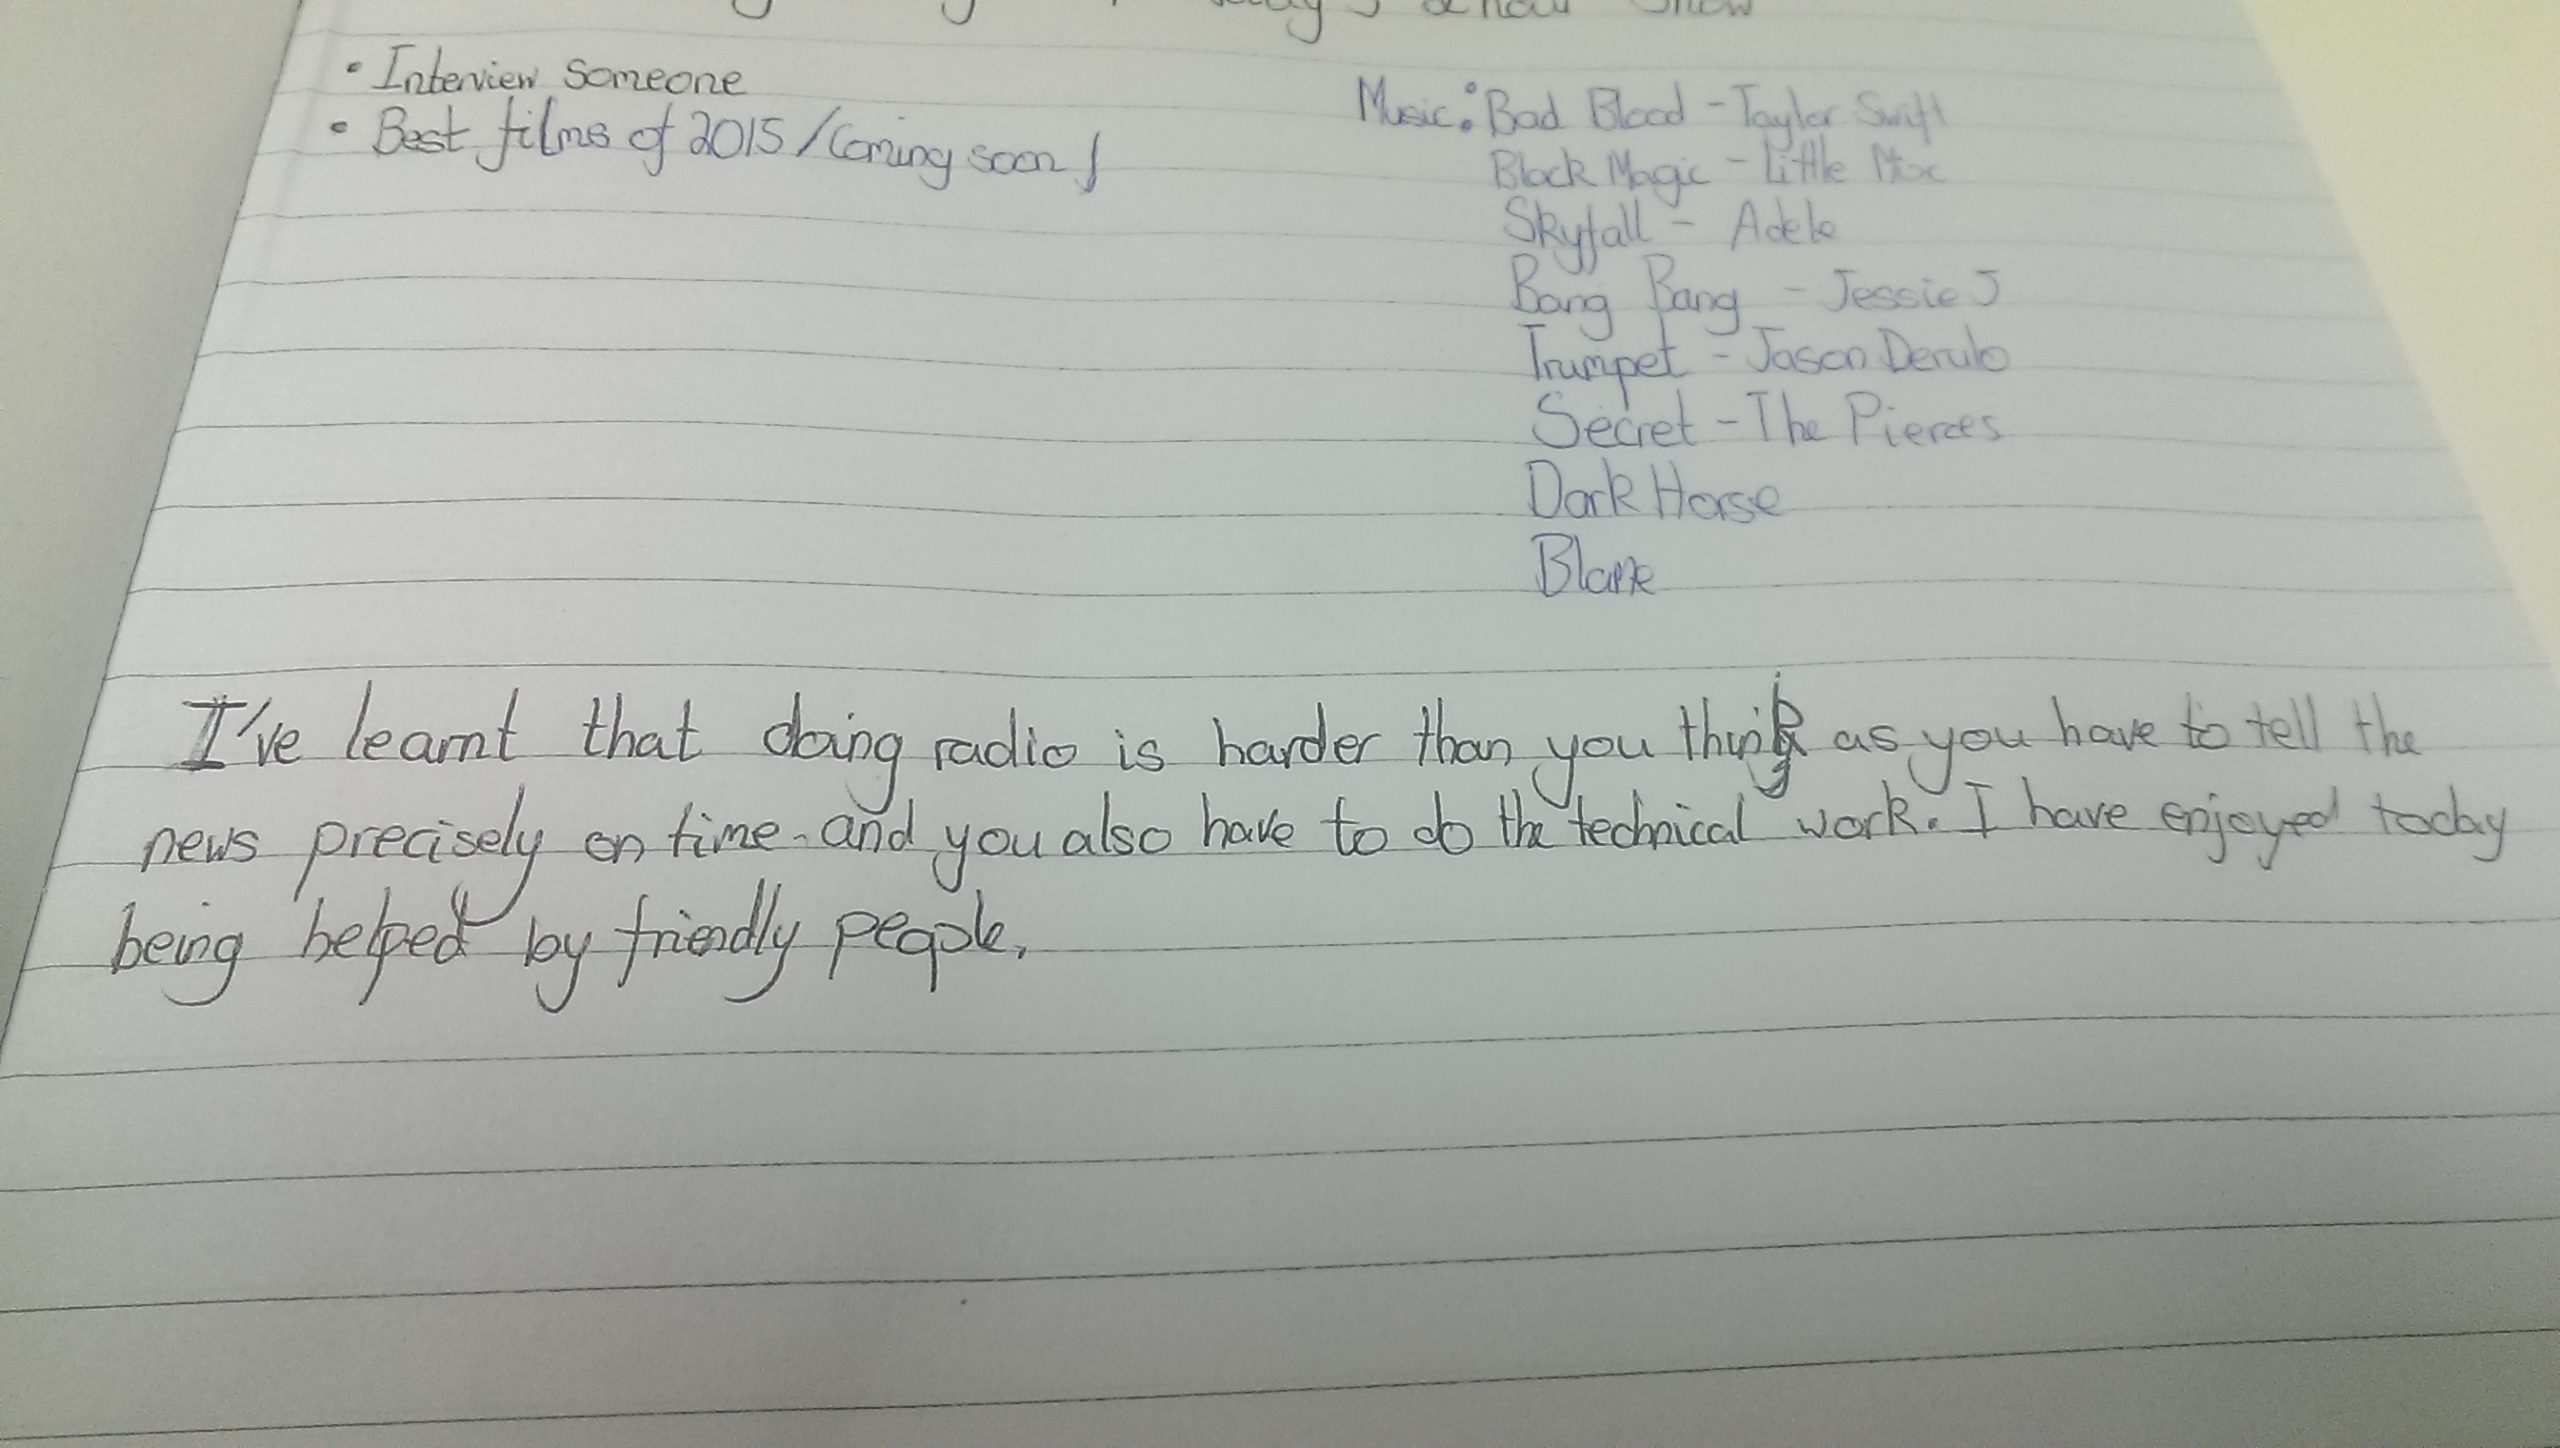 show
• Interview someone
• Best films of 2015/Coming soon!
Music: Bad Blood - Taylor Swift
Black Magic - Little Mix
Skyfall - Adele
Bang Bang - Jessie J
Trumpet - Jason Derulo
Secret - The Pierces
Dark Horse
Blame
I've learnt that doing radio is harder than you think as you have to tell the
news precisely on time and you also have to do the technical work. I have enjoyed today
being helped by friendly people.